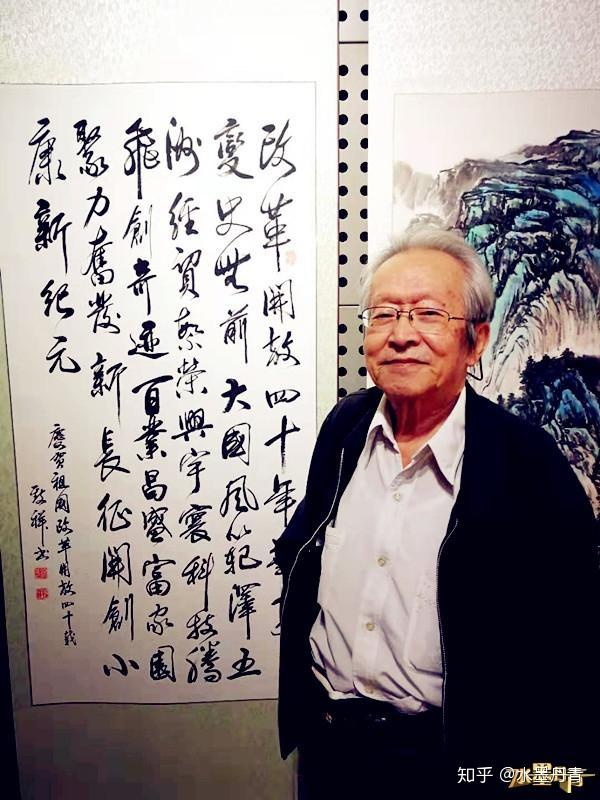 改革開放四十年
變史無前大國風範澤五
洲經貿繁榮興宇寰科技騰
飛創奇迹百業昌盛富家園
聚力奮發新長征開創小
康新紀元
慶賀祖國改革開放四十載
祥书
知乎 @水墨丹青